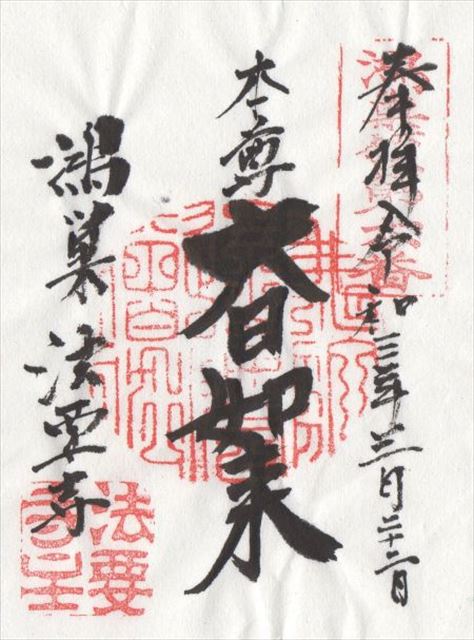 奉拝 令和三年三月二十二日
本尊
大日如来
鴻巣 法要寺
法要
寺主